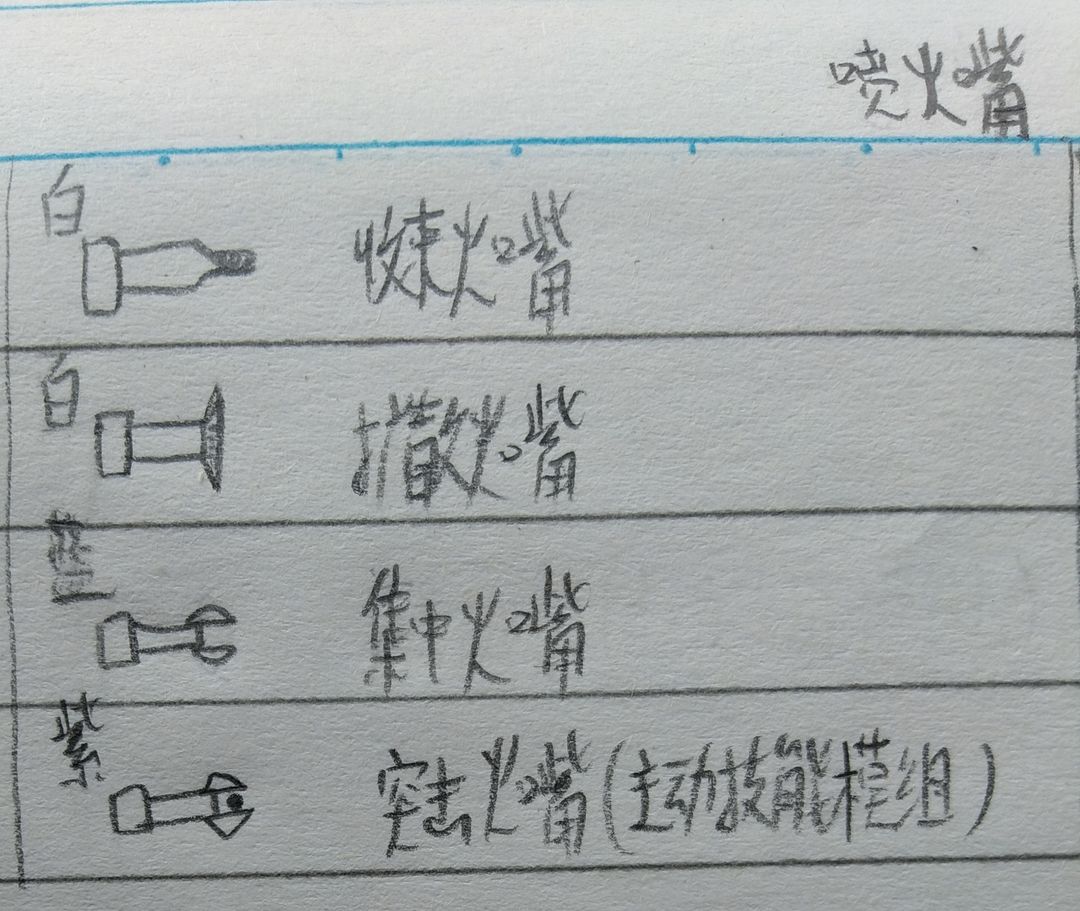 喷火嘴
白
收束火嘴
白
撒火嘴
蓝
集中火嘴
紫
突击火嘴(主动技能模组)